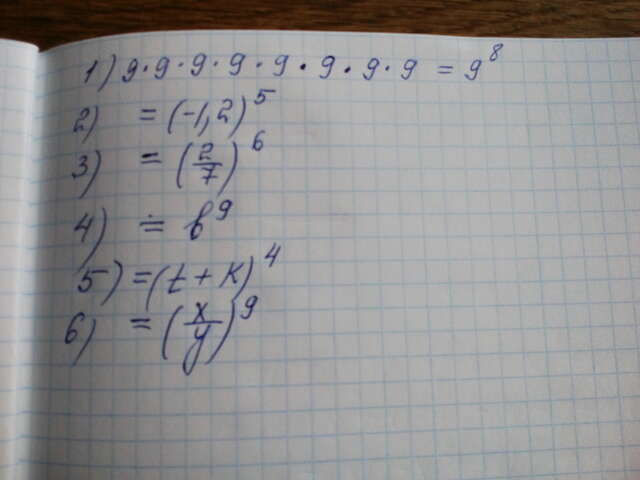 1) 9·9·9·9·9·9·9·9 = 9⁸
2) = (-1,2)⁵
3) = (2/7)⁶
4) = b⁹
5) = (t + k)⁴
6) = (x/y)⁹